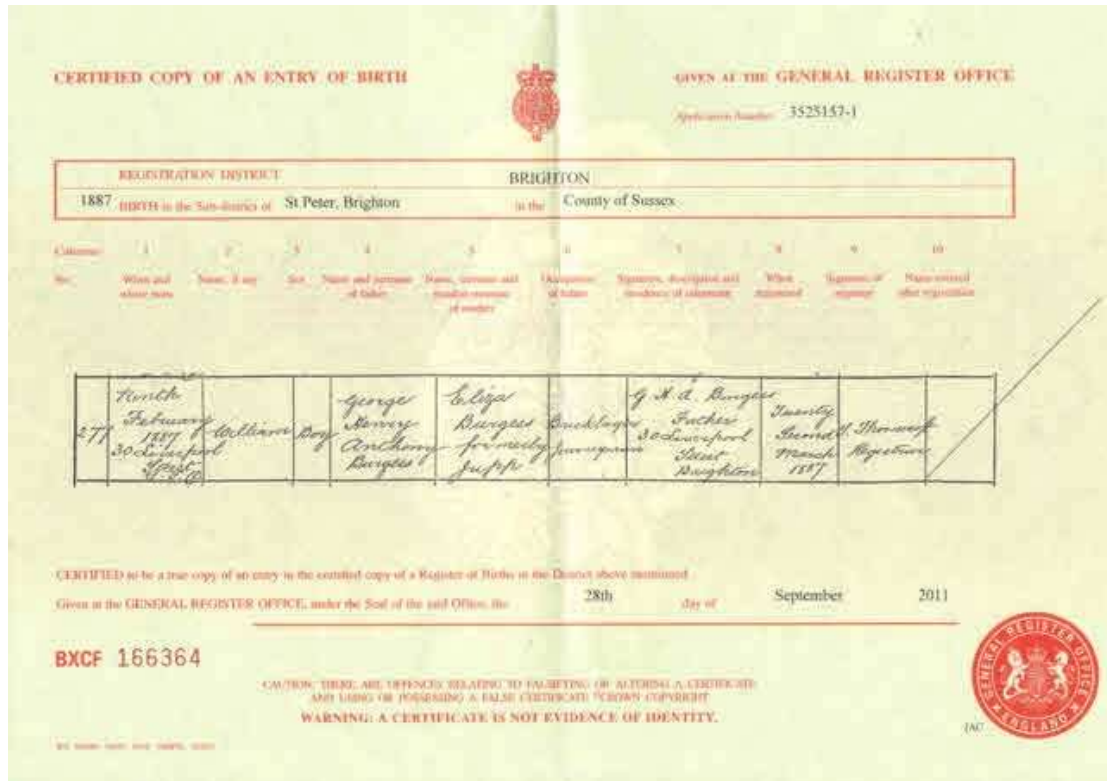 CERTIFIED COPY OF AN ENTRY OF BIRTH
GIVEN AT THE GENERAL REGISTER OFFICE
Application Number 3525157-1
REGISTRATION DISTRICT BRIGHTON
1887 BIRTH in the Sub-district of St Peter, Brighton in the County of Sussex
Columns: 1 2 3 4 5 6 7 8 9 10
No. When and Name, if any Sex Name and surname Name, surname and Occupation Signature, description and When Signature of Name entered
where born of father maiden surname of father residence of informant registered registrar after registration
of mother
277
Ninth
February
1887
30 Liverpool
Street
William
Boy
George
Henry
Anthony
Burgess
Eliza
Burgess
formerly
Jupp
Bricklayer
Journeyman
G H A Burgess
Father
30 Liverpool
Street
Brighton
Twenty
Second
March
1887
Registrar
CERTIFIED to be a true copy of an entry in the certified copy of a Register of Births in the District above mentioned
Given at the GENERAL REGISTER OFFICE, under the Seal of the said Office, the 28th day of September 2011
BXCF 166364
CAUTION: THERE ARE OFFENCES RELATING TO FALSIFYING OR ALTERING A CERTIFICATE
AND USING OR POSSESSING A FALSE CERTIFICATE ©CROWN COPYRIGHT
WARNING: A CERTIFICATE IS NOT EVIDENCE OF IDENTITY.
GENERAL REGISTER OFFICE
ENGLAND